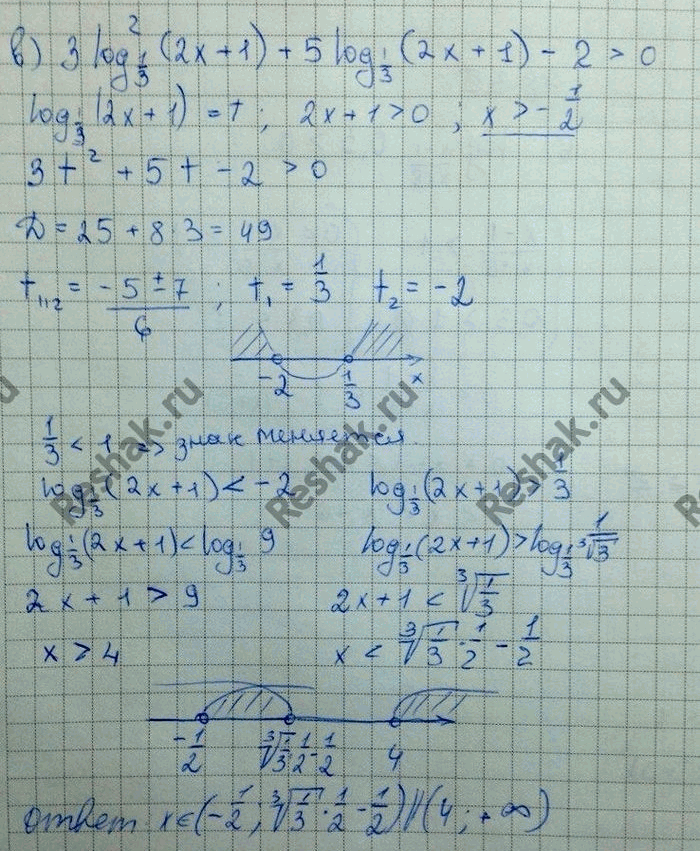 в) 3 log²_{1/3} (2x+1) + 5 log_{1/3} (2x+1) - 2 > 0
log_{1/3} (2x+1) = t ; 2x+1>0 ; x > -1/2
3t² + 5t - 2 > 0
D = 25 + 8·3 = 49
t_{1,2} = (-5 ± 7)/6 ; t₁ = 1/3 t₂ = -2
-2 1/3 x
1/3 < 1 => знак меняется.
log_{1/3} (2x+1) < -2 log_{1/3} (2x+1) > 1/3
log_{1/3} (2x+1) < log_{1/3} 9 log_{1/3} (2x+1) > log_{1/3} ∛(1/3)
2x+1 > 9 2x+1 < ∛(1/3)
x > 4 x < ∛(1/3)·1/2 - 1/2
-1/2 ∛(1/3)·1/2 - 1/2 4
ответ x∈(-1/2 ; ∛(1/3)·1/2 - 1/2)U(4 ; +∞)
Reshak.ru
Reshak.ru
Reshak.ru